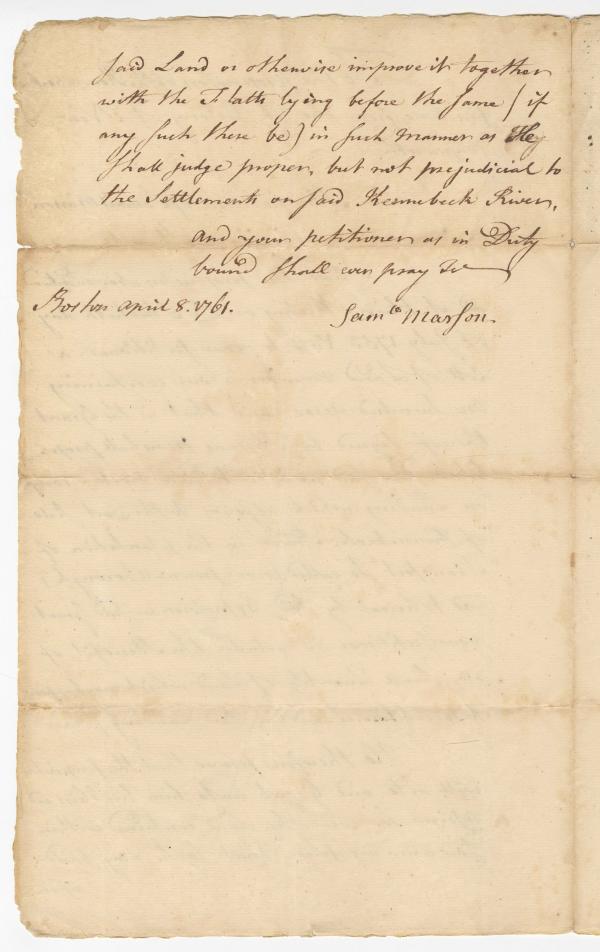 said Land or otherwise improve it together
with the Flatts lying before the same (if
any such there be) in such manner as they
shall judge proper, but not prejudicial to
the Settlements on said Kennebeck River,
and your petitioner as in Duty
bound shall ever pray &c
Boston april 8. 1761.
Saml. Marson.